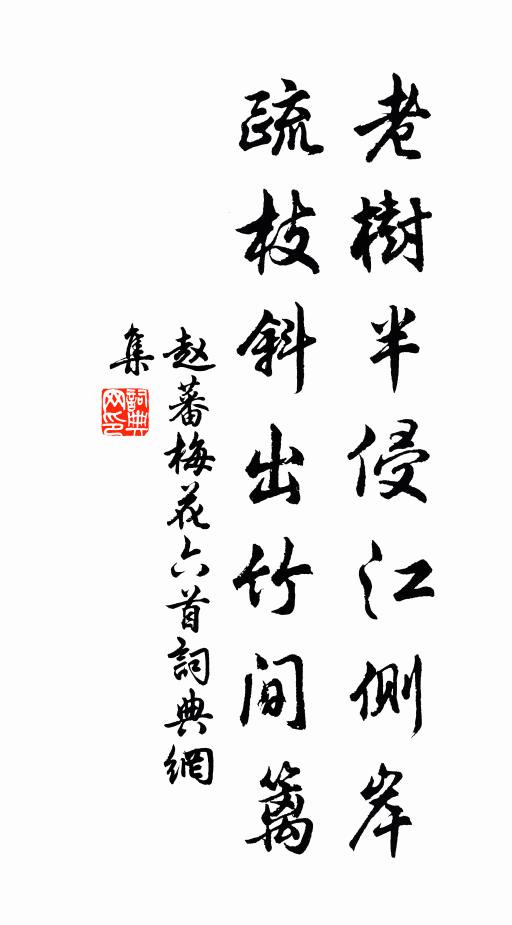 老樹半侵江側岸
疏枝斜出竹間籬
赵蕃梅花六首詞典網
集
詞典
网印